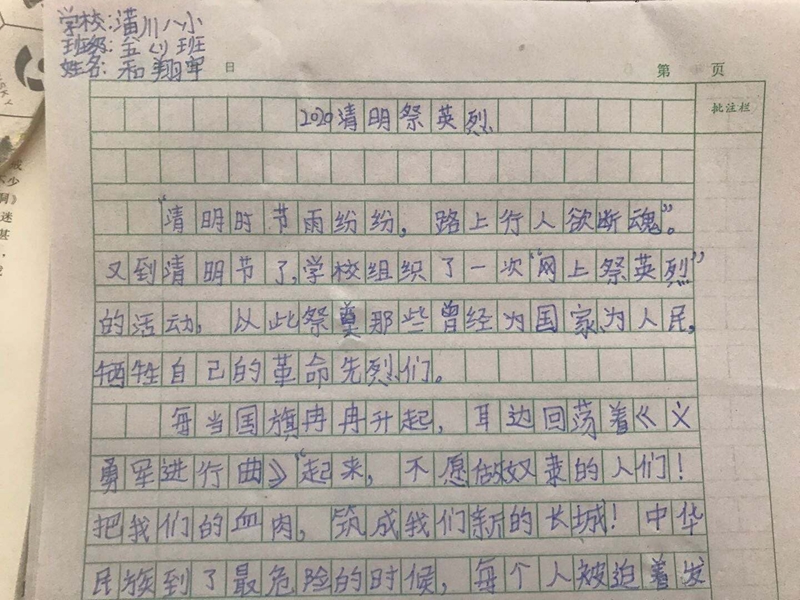 学校:潢川八小
班级:五(1)班
姓名:和翔军
日
第 页
批注栏
2020清明祭英烈
“清明时节雨纷纷，路上行人欲断魂”。
又到清明节了,学校组织了一次“网上祭英烈”
的活动，以此祭奠那些曾经为国家、为人民,
牺牲自己的革命先烈们。
每当国旗冉冉升起，耳边回荡着《义
勇军进行曲》“起来，不愿做奴隶的人们！
把我们的血肉，筑成我们新的长城！中华
民族到了最危险的时候，每个人被迫着发